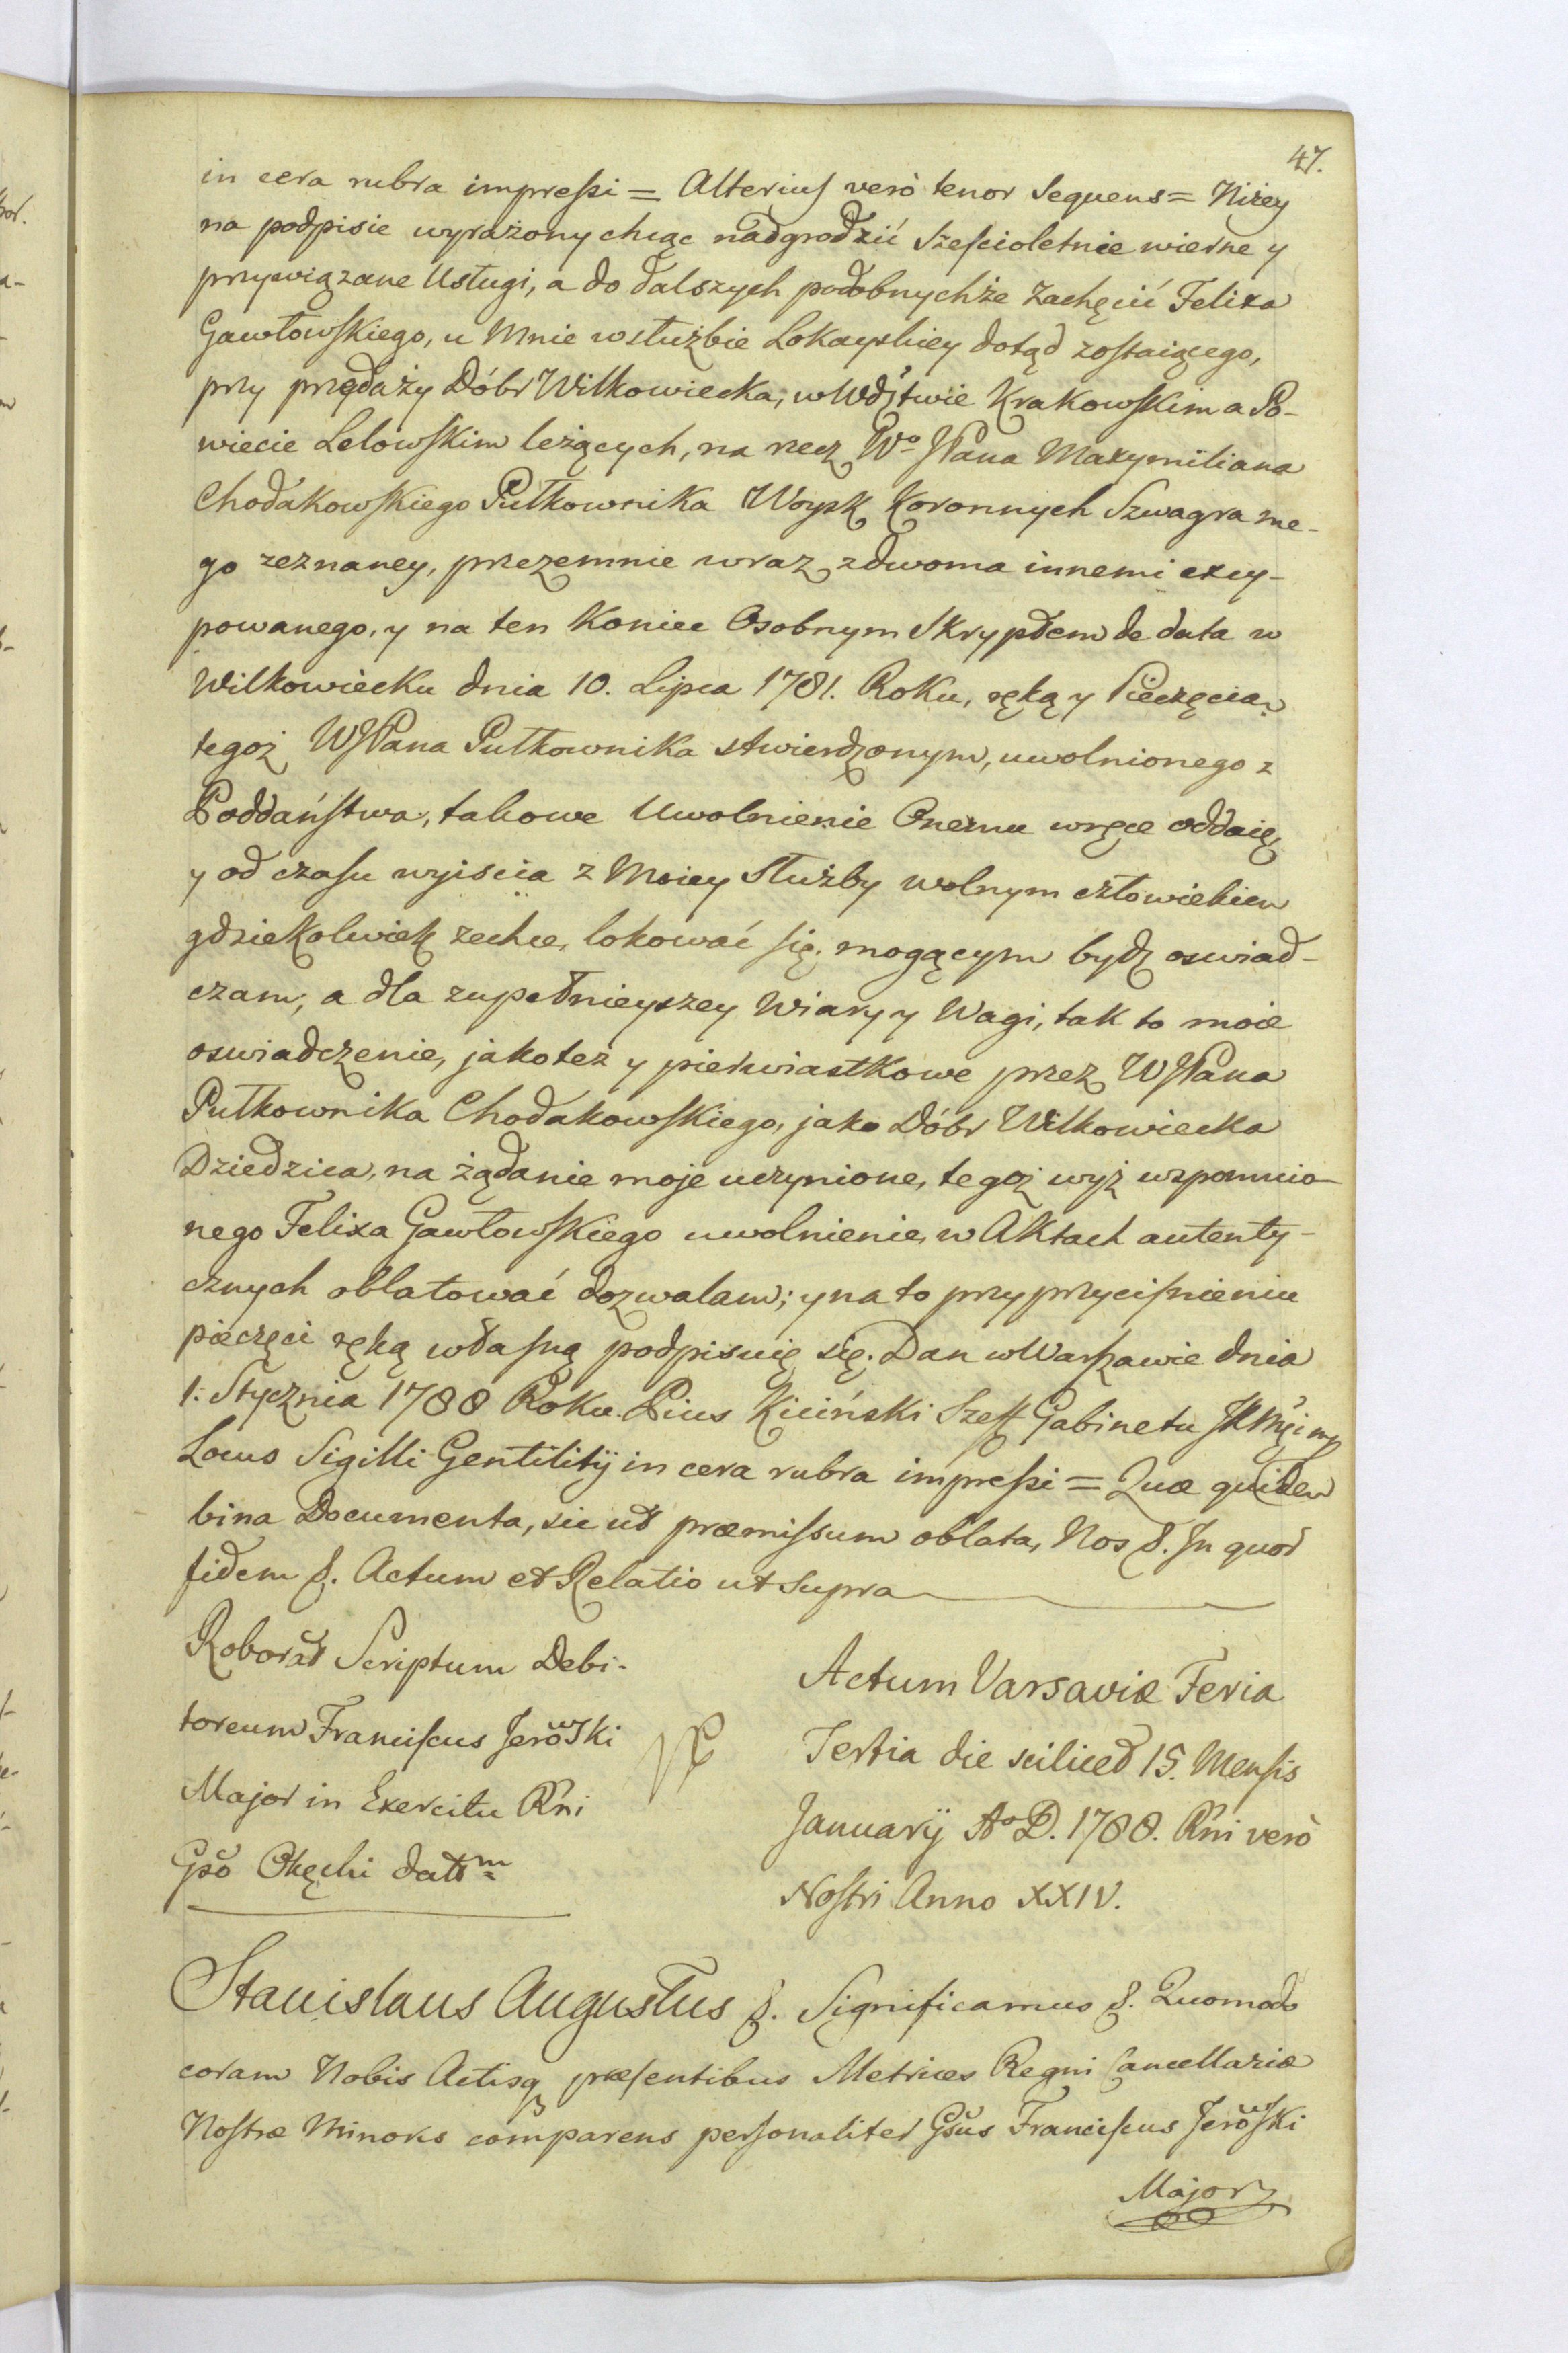 47.
in cera rubra impressi = Alterius verò tenor Sequens = Niżey
na podpisie wyrażony chcąc nadgrodzić Sześcioletnie wierne y
przywiązane Usługi, a do dalszych podobnychże Zachęcić Felixa
Gawłowskiego, u Mnie w służbie Lokayskiey dotąd zostaiącego,
przy przedaży Dóbr Wilkowiecka, w Wdztwie Krakowskim a Po-
wiecie Lelowskim leżących, na rzecz Wo JPana Maxymiliana
Chodakowskiego Pułkownika Woysk Koronnych Szwagra me-
go zeznaney, przezemnie wraz z dwoma innemi excy-
powanego, y na ten Koniec Osobnym Skryptem de data w
Wilkowiecku dnia 10. Lipca 1781. Roku, ręką y Pieczęcią
tegoż WJPana Pułkownika stwierdzonym, uwolnionego z
Poddaństwa, takowe Uwolnienie Onemu w ręce oddaię
y od czasu wyiscia z Moiey Służby wolnym człowiekiem
gdziekolwiek zechce, lokować się, mogącym bydz oswiad-
czam; a dla zupełnieyszey Wiary y Wagi, tak to moie
oswiadczenie, jako też y pierwiastkowe przez WJPana
Pułkownika Chodakowskiego, jako Dóbr Wilkowiecka
Dziedzica, na żądanie moje uczynione, tegoż wyż wzpomnio-
nego Felixa Gawłowskiego uwolnienie, w Aktach autenty-
cznych oblatować dozwalam; y na to przy przycisnieniu
pieczęci ręką własną podpisuię się. Dan w Warszawie dnia
1. Stycznia 1788 Roku. Pius Kiciński Szeff Gabinetu JKMci mp
Locus Sigilli Gentilitij in cera rubra impressi = Quæ quidem
bina Documenta, sic ut præmissum oblata, Nos &. In quor
fidem &. Actum et Relatio ut supra
Roborat Scriptum Debi-
toreum Franciscus Jerowski
Major in Exercitu Rni
Gso Okęcki datm
Actum Varsaviæ Feria
Tertia die scilicet 15. Mensis
Januarij Ao D. 1788. Rni verò
Nostri Anno XXIV.
Stanislaus Augustus &. Significamus &. Quomodo
coram Nobis Actisq præsentibus Metrices Regni Cancellariæ
Nostræ Minoris comparens personaliter Gsus Franciscus Jerowski
Major